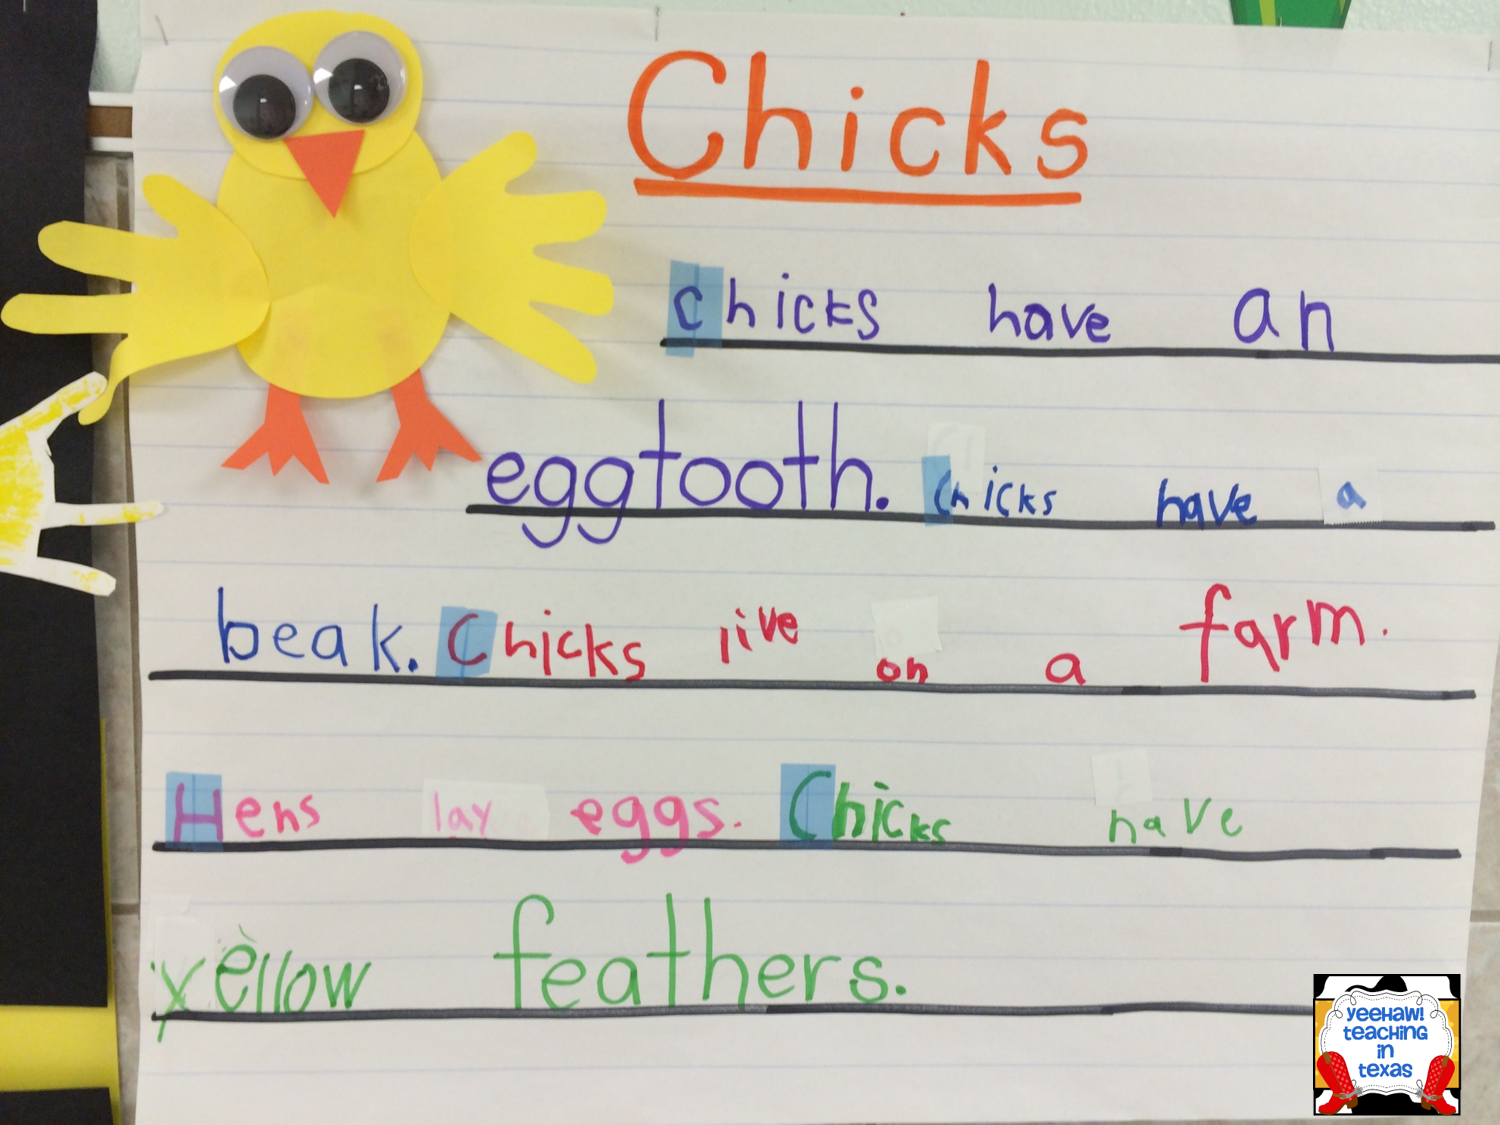 Chicks
chicks have an
eggtooth. Chicks have a
beak. Chicks live on a farm.
Hens lay eggs. Chicks have
yellow feathers.
YEEHAW!
TEACHING
IN
TEXAS